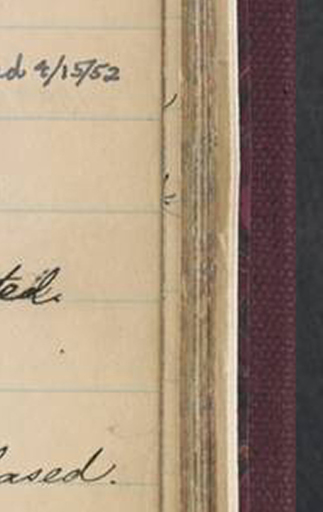 d 4/15/52
ted.
ased.